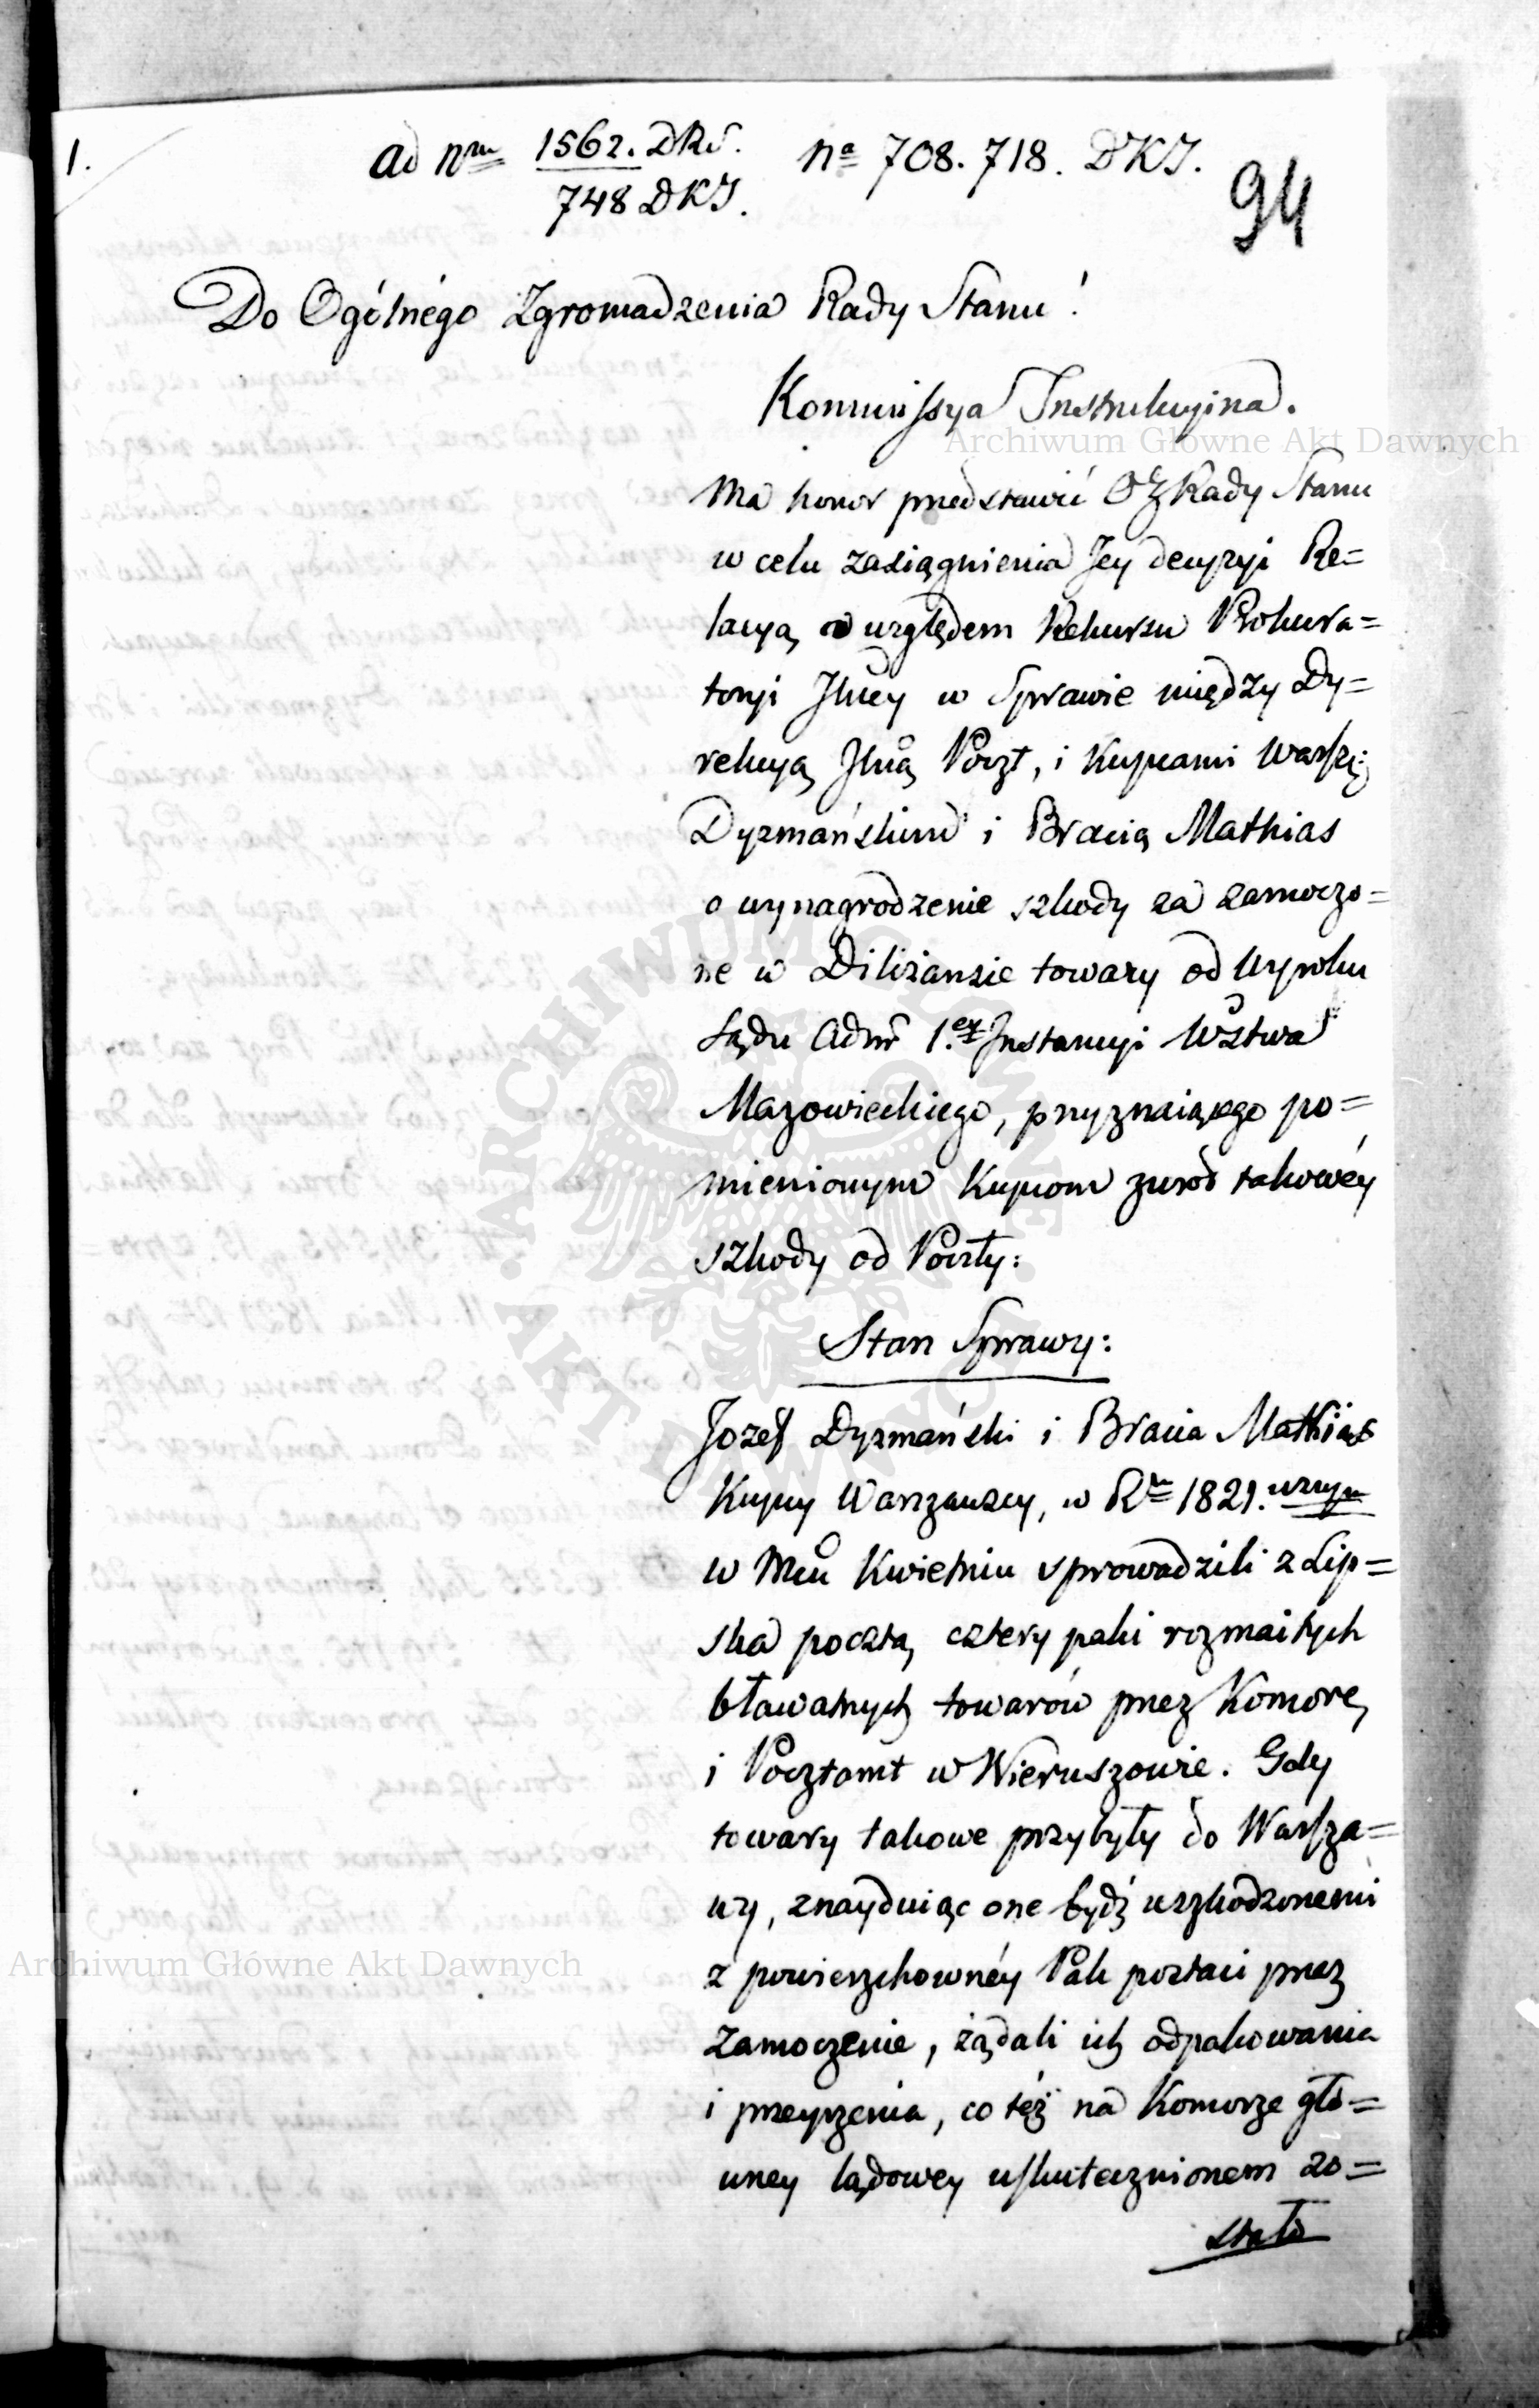 1.
ad Nrm 1562. DRS. Na 708. 718. DKJ.
748 DKJ.
94
Do Ogólnégo Zgromadzenia Rady Stanu!
Kommissya Instrukcyina.
Archiwum Główne Akt Dawnych
Ma honor przedstawić OZ Rady Stanu
w celu zasiągnienia Jey decyzyi Re=
lacyą względem Rekursu Prokura=
toryi Jlney w Sprawie między Dy=
rekcyą Jlną Poczt, i Kupcami Warsz:
Dyzmańskim i Bracią Mathias
o wynagrodzenie szkody za zamoczo=
ne w Diliżansie towary od Wyroku
Sądu Admr 1.ey Instancyi Wdztwa
Mazowieckiego, przyznaiącego po=
mienionym Kupcom zwrót takowéy
szkody od Poczty:
Stan Sprawy:
Jozef Dyzmański i Bracia Mathias
Kupcy Warszawscy, w Rku 1821.
w Mcu Kwietniu sprowadzili z Lip=
ska pocztą, cztery paki rozmaitych
bławatnych towarów przez Komorę,
i Pocztamt w Wieruszowie. Gdy
towary takowe przybyły do Warsza=
wy, znayduiąc one bydź uszkodzonemi
z powierzchownéy Pak postaci przez
Archiwum Główne Akt Dawnych
zamoczenie, żądali ich odpakowania
i przeyrzenia, co téż na Komorze głó=
wney lądowey uskutecznionem zo=
stało
ARCHIWUM GŁÓWNE · AKT DAWNYCH ·